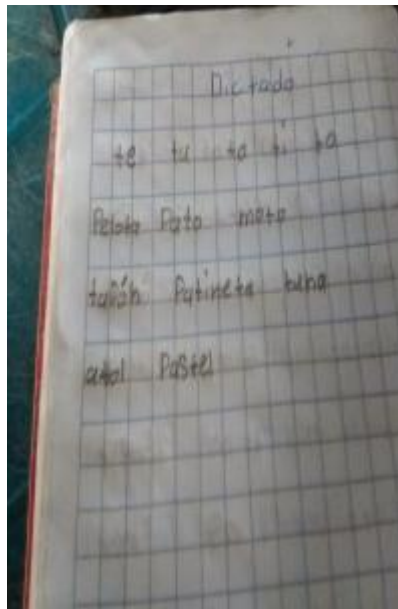 Dictado
te tu to ti ta
Pelota Pato moto
Patineta tuna
atol Pastel